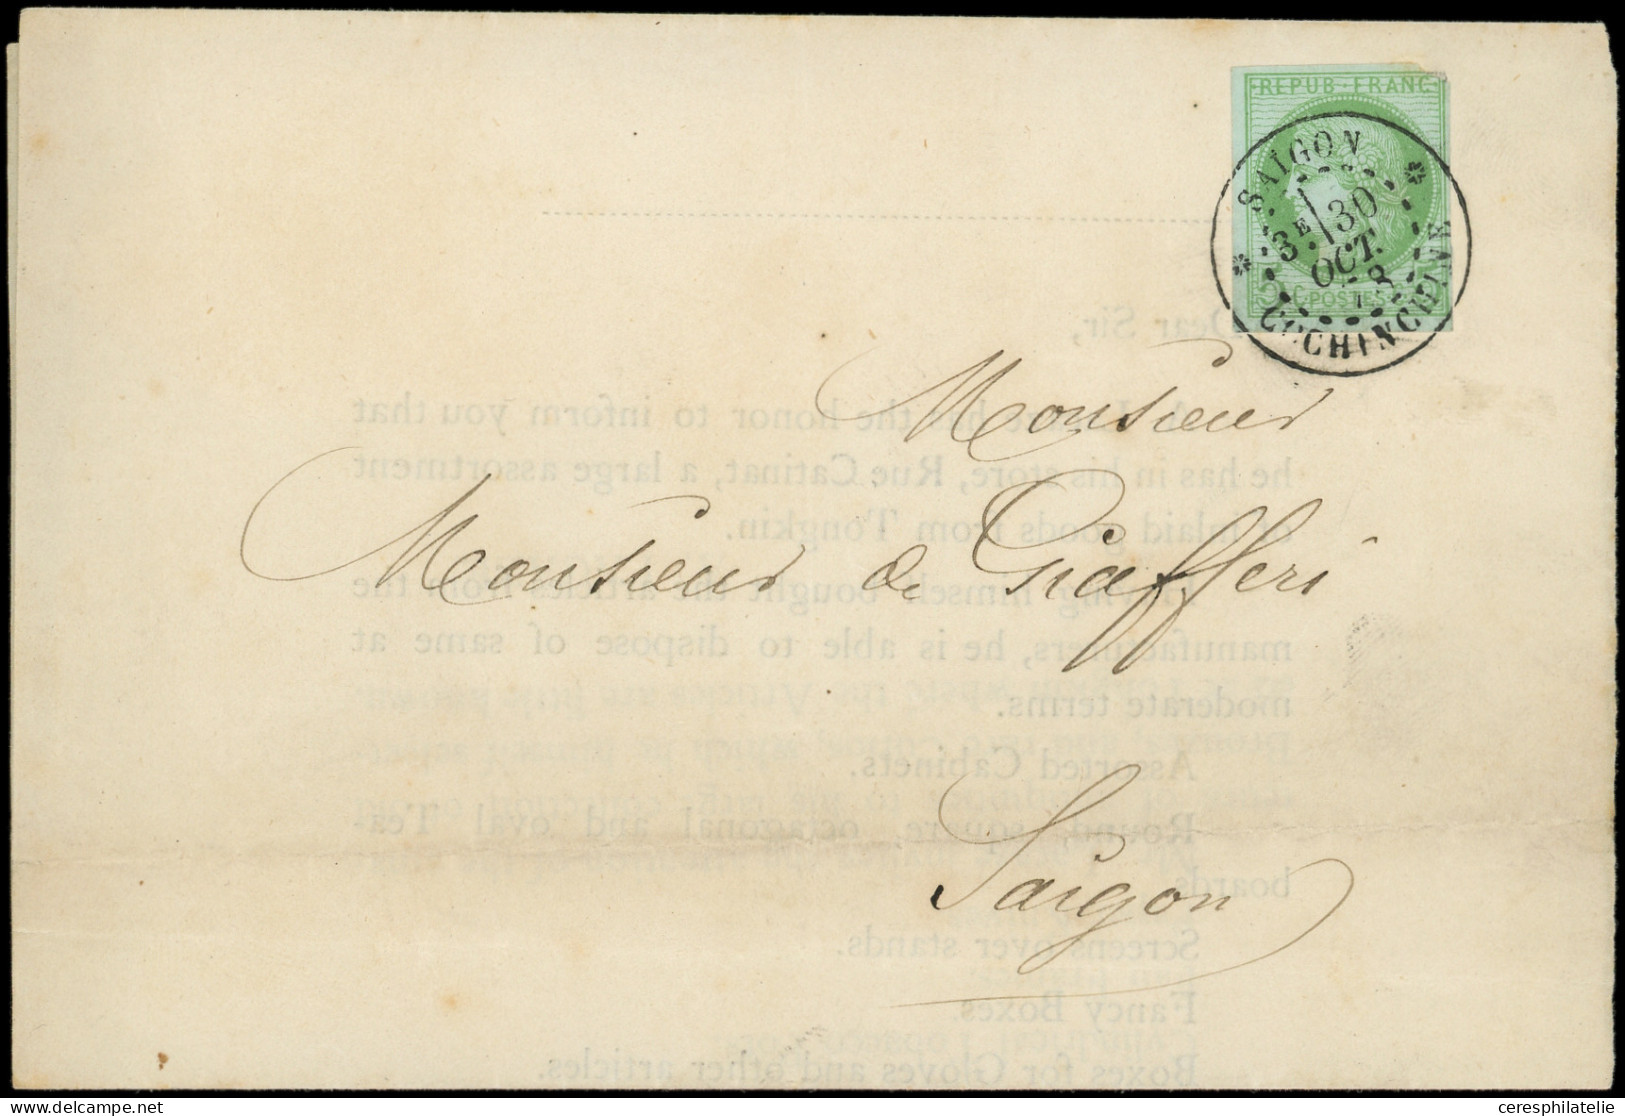 REPUB·FRANC
SAIGON
3E 30
OCT.
COCHINCHINE
5 C POSTES 5
Dear Sir,
Monsieur
has the honor to inform you that
he has in his store, Rue Catinat, a large assortment
Monsieur de Giafferi
of inlaid goods from Tongkin.
Having himself bought the articles from the
manufacturers, he is able to dispose of same at
moderate terms.
Assorted Cabinets.
Round, square, octagonal and oval Tea-
boards
Saigon
Screens over stands.
Fancy Boxes.
Boxes for Gloves and other articles.
ceresphilatelie